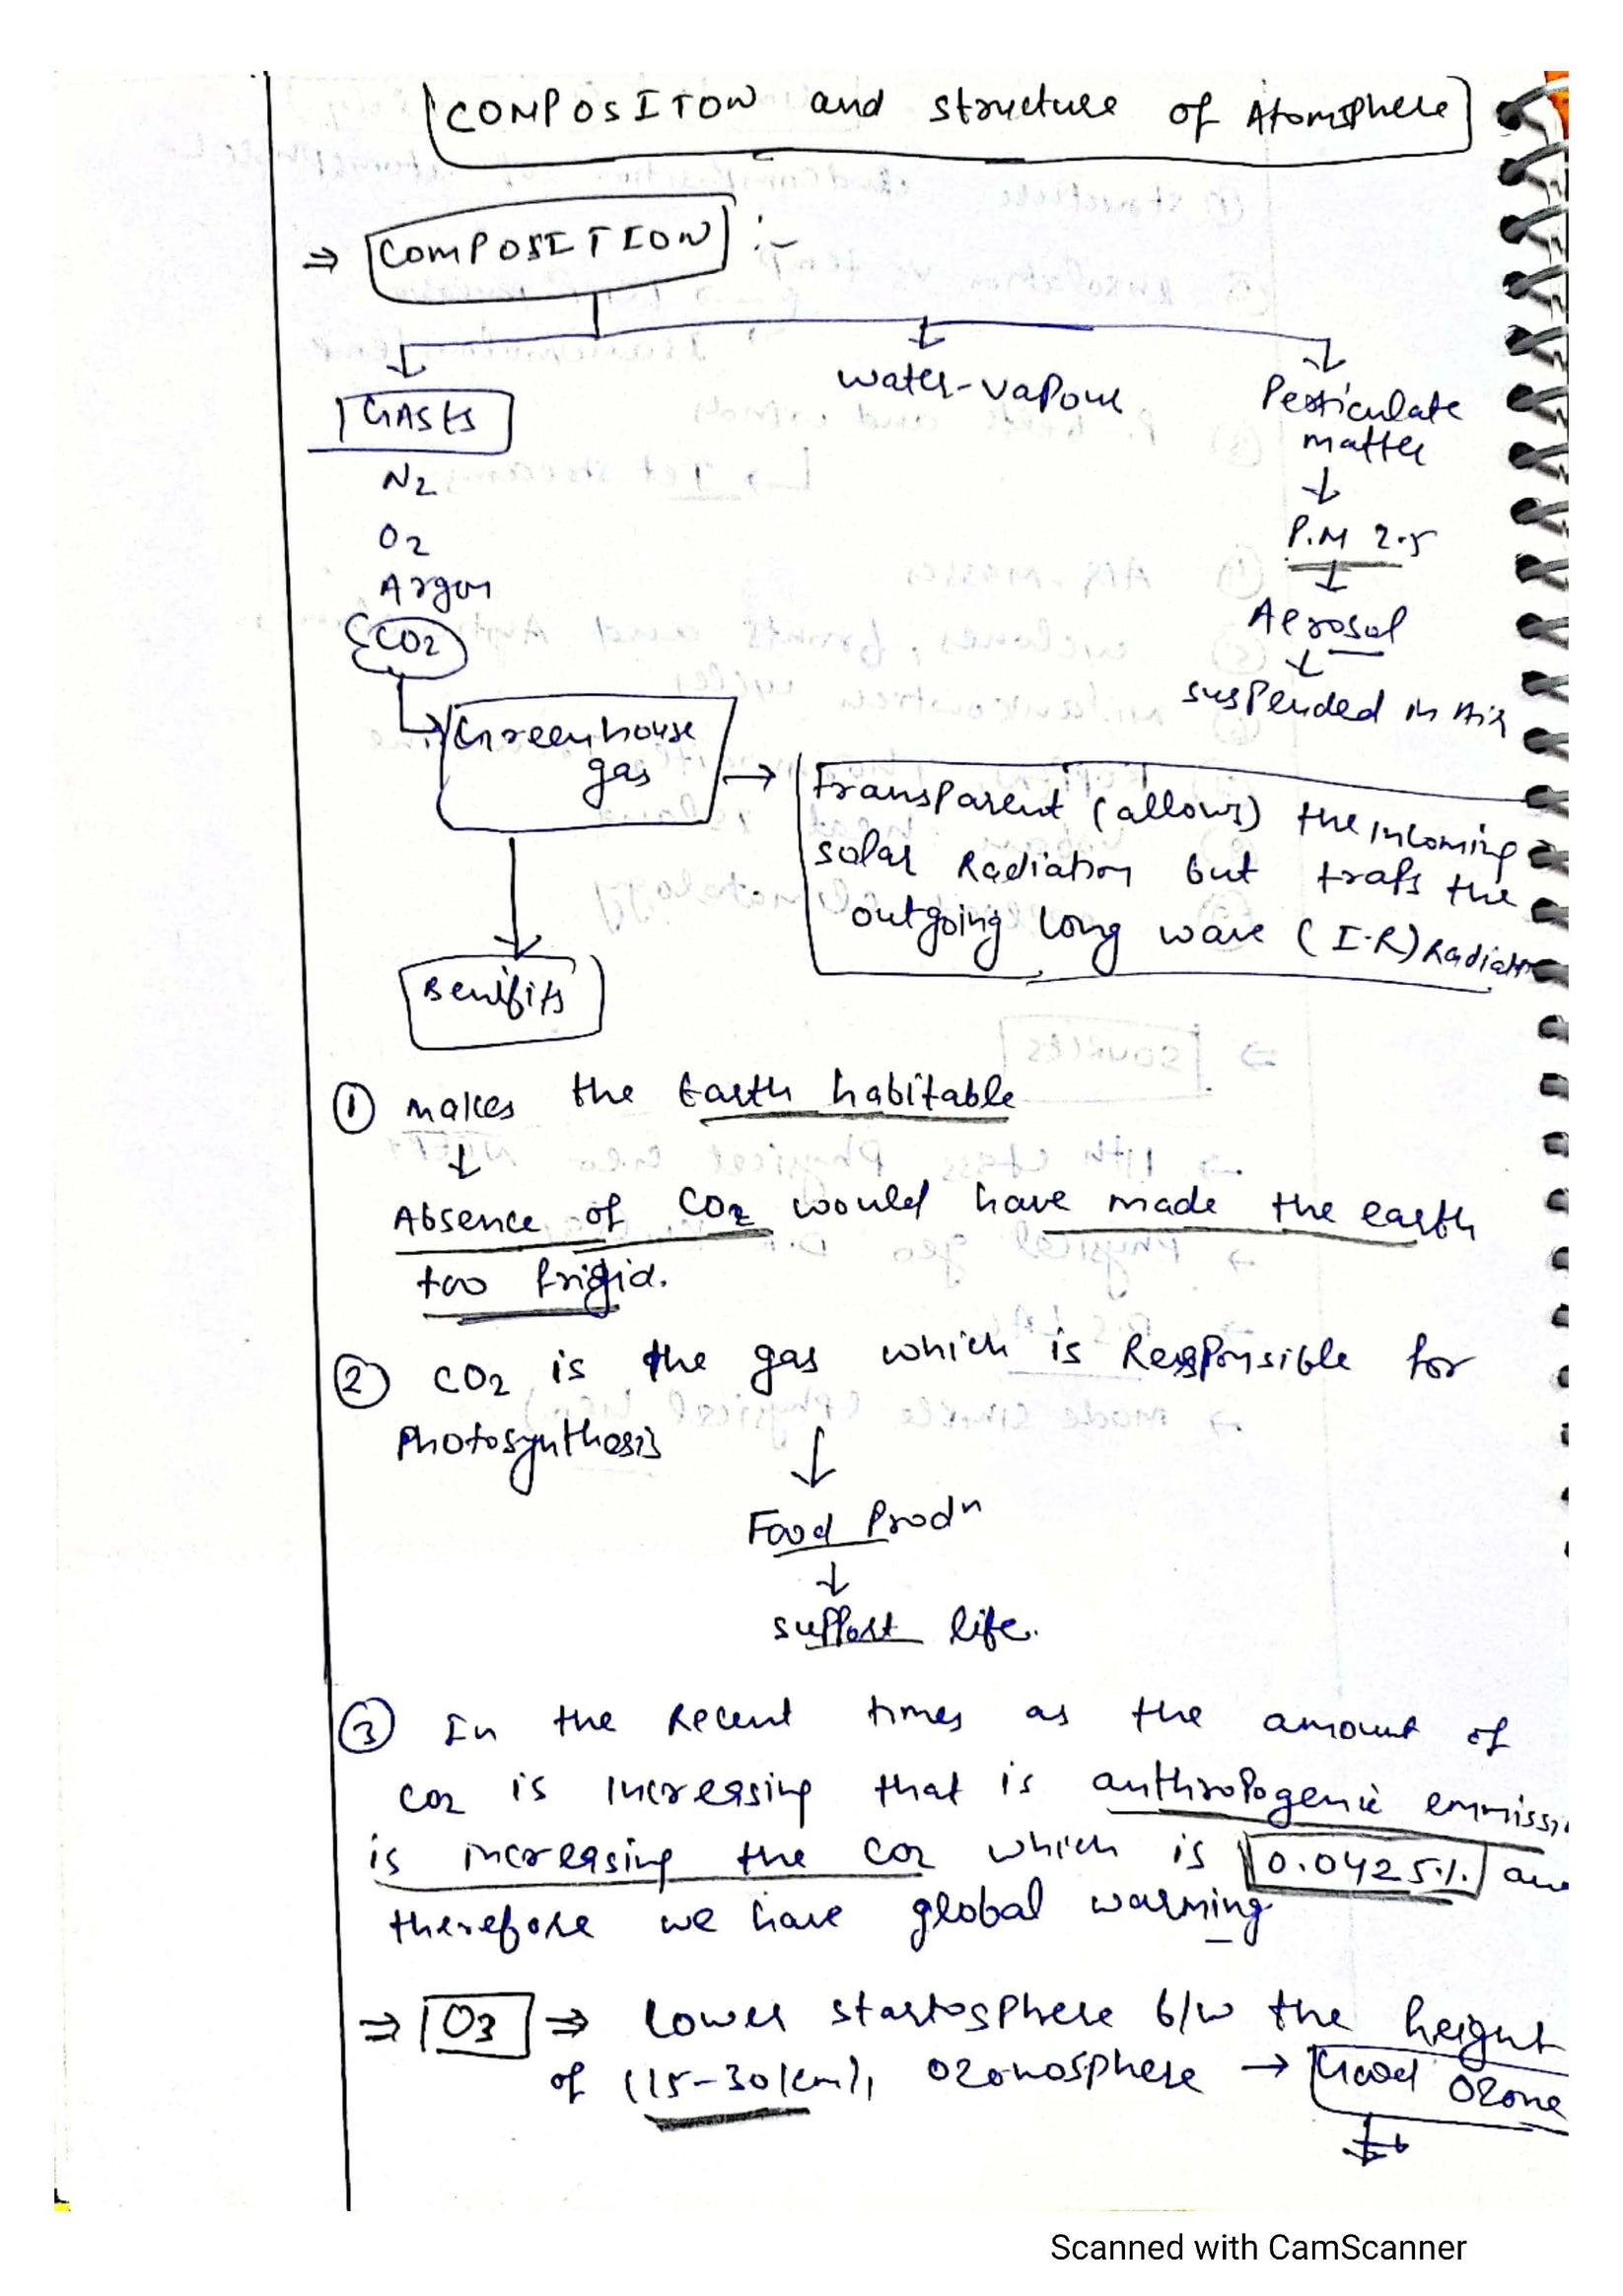 COMPOSITON and structure of Atomsphere
⇒ COMPOSITION :-
GASES
water-vapour
Particulate
matter
N2
O2
Argon
CO2
P.M 2.5
Aerosol
suspended in Air
Greenhouse
gas
→ transparent (allows) the incoming
solar Radiation but traps the
outgoing long wave (I.R) Radiatn
Benifits
① makes the Earth habitable
Absence of CO2 would have made the earth
too frigid.
② CO2 is the gas which is Responsible for
Photosynthesis
Food Prodn
support life.
③ In the Recent times as the amount of
CO2 is increasing that is anthropogenic emmissi
is increasing the CO2 which is 0.0425% an
therefore we have global warming
⇒ O3 ⇒ lower startosphere b/w the height
of (15-30km), ozonosphere → Good Ozone
Scanned with CamScanner